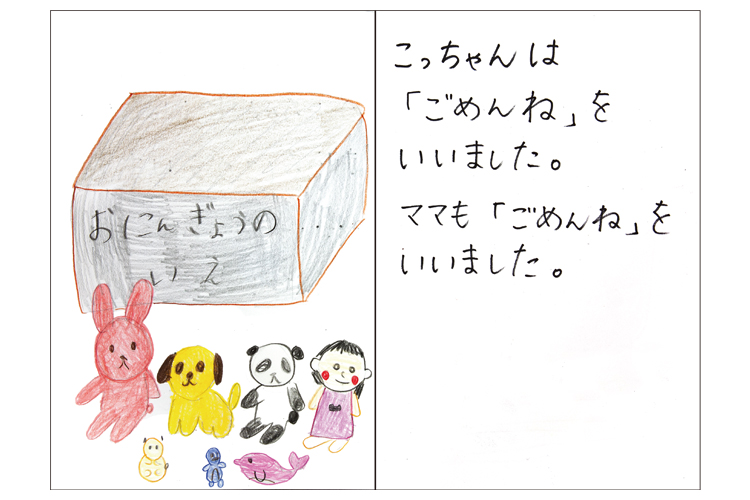 おにんぎょうの
いえ
こっちゃんは
「ごめんね」を
いいました。
ママも「ごめんね」を
いいました。